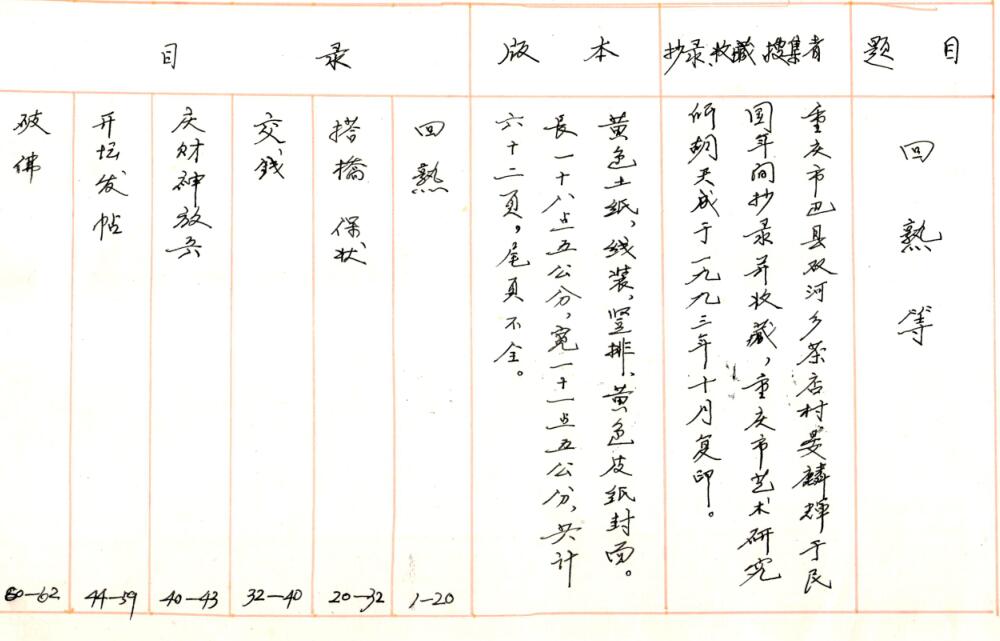 题目
回熟等
抄录、收藏、搜集者
重庆市巴县双河乡茶店村晏麟辉于民
国年间抄录并收藏，重庆市艺术研究
所胡天成于一九九三年十月复印。
版本
黄色土纸，线装，竖排，黄色皮纸封面。
长一十八点五公分，宽一十一点五公分，共计
六十二页，尾页不全。
目录
回熟 1—20
搭橋 保状 20—32
交钱 32—40
庆财神放兵 40—43
开坛发帖 44—59
破佛 60—62